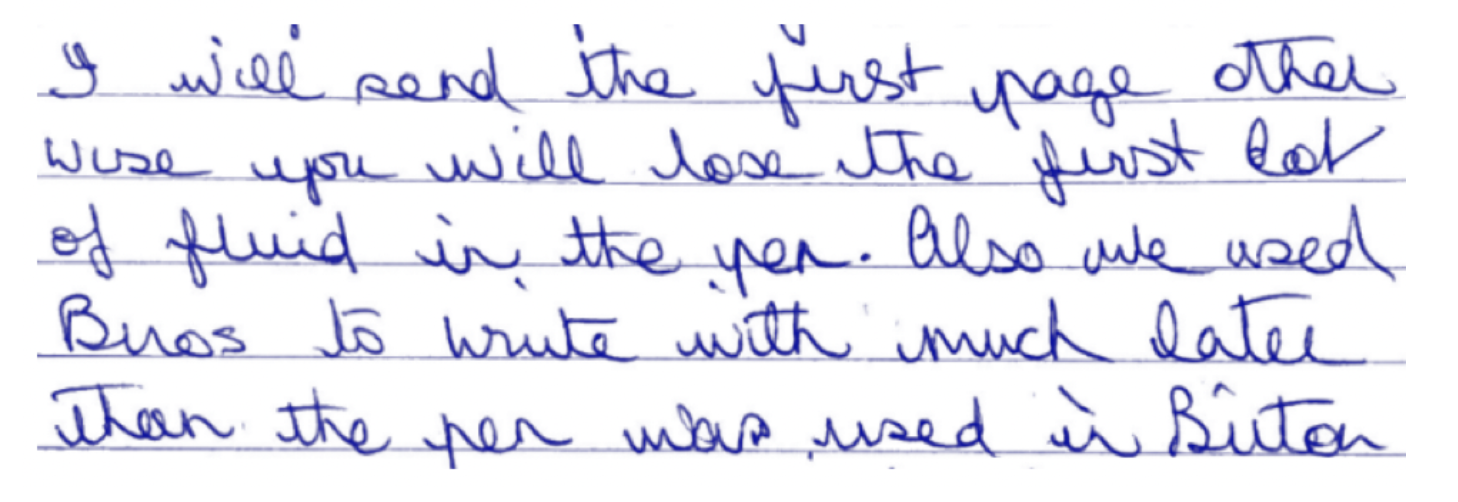 I will send the first page other
wise you will lose the first lot
of fluid in the pen. Also we used
Biros to write with much later
than the pen was used in Briton